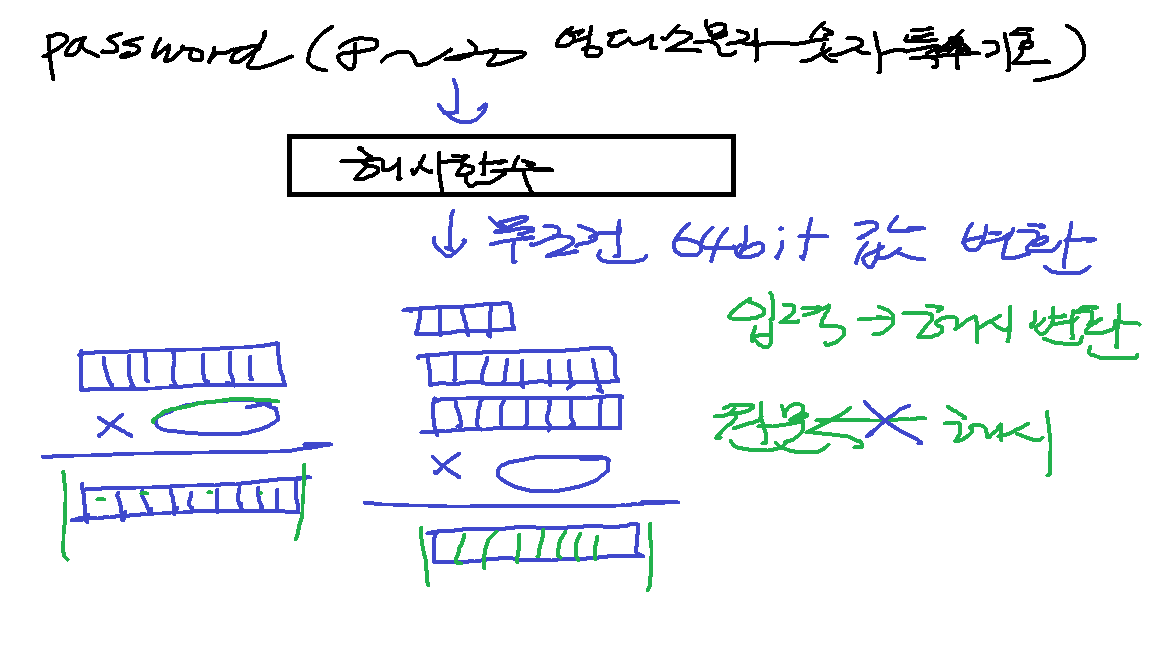 password (8~20 영대소문자 숫자 특수기호)
해시함수
무조건 64bit 값 변환
입력 → 해시 변환
원문 ← 해시